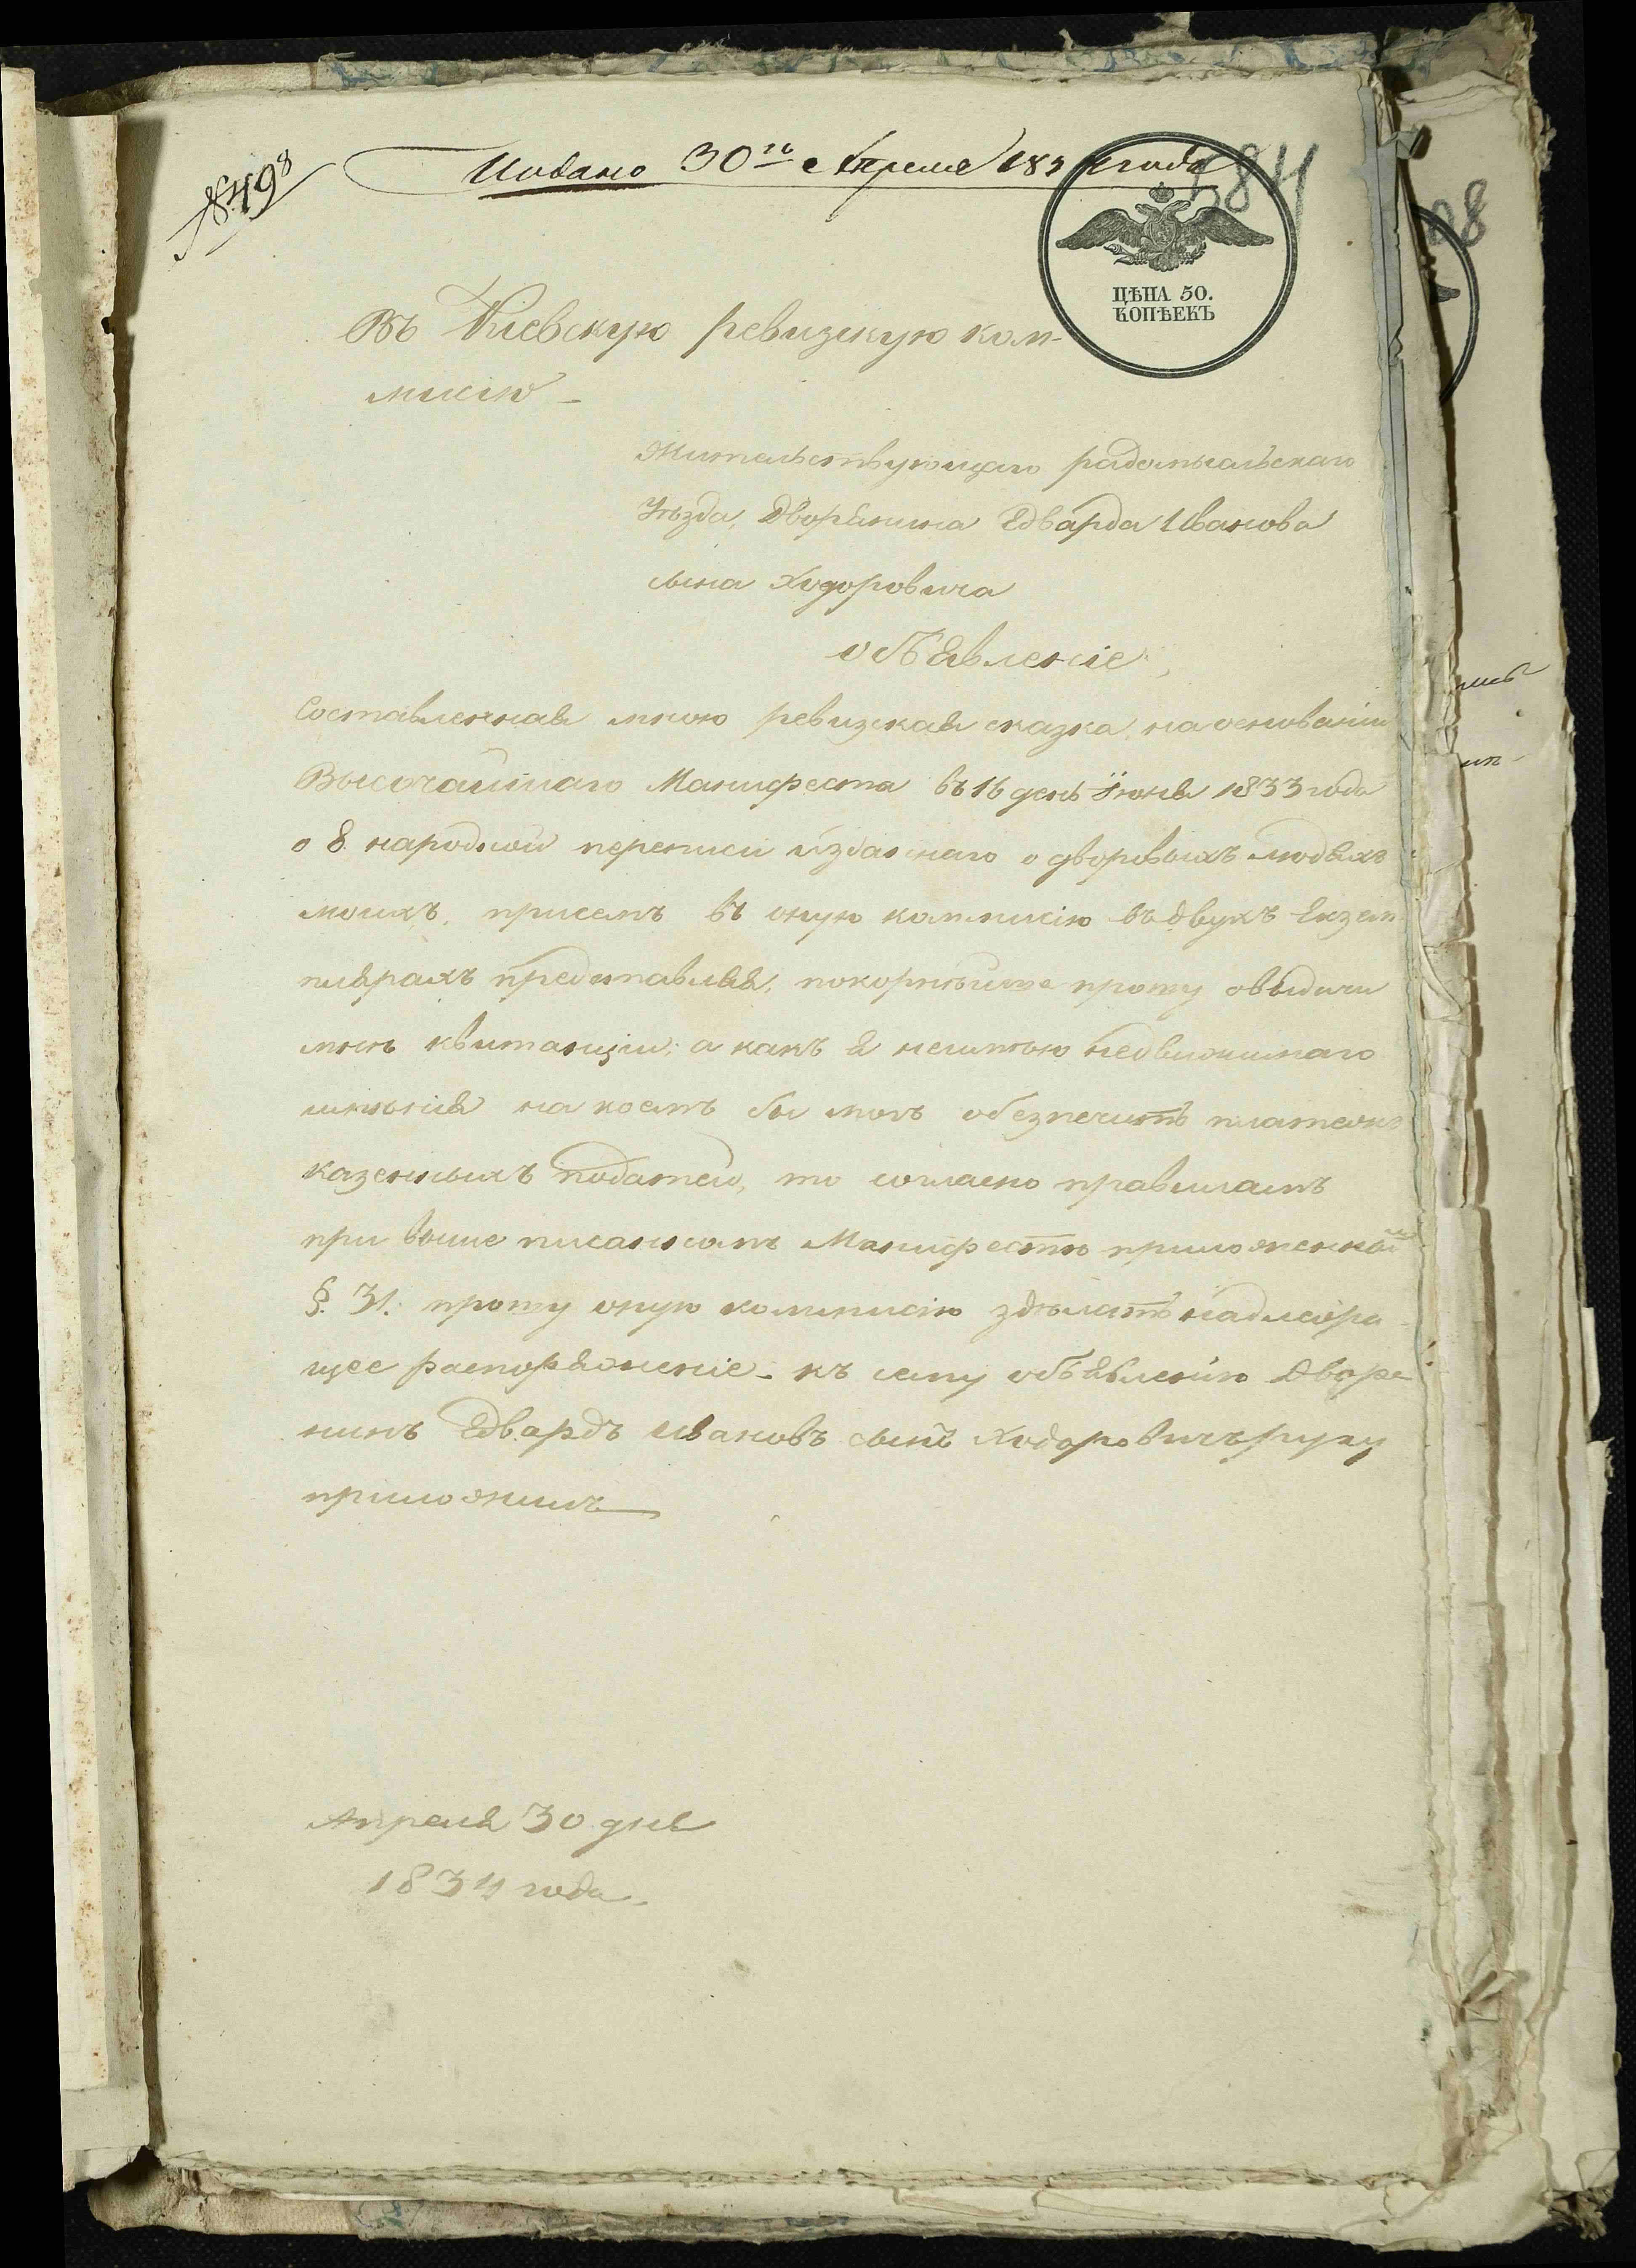 № 498
Подано 30го Апреля 1834 года
584
ЦѢНА 50.
КОПѢЕКЪ
Въ Киевскую ревизскую ком-
мисію -
Жительствующаго радомысльскаго
Уѣзда, Дворянина Едварда Иванова
сына Ходоровича
объявленіе,
Составленная мною ревизская сказка, на основаніи
Высочайшаго Манифеста въ 16 день Іюня 1833 года
о 8 народной переписи изданнаго о дворовыхъ людяхъ
моихъ, присемъ въ оную коммисію въ двухъ Екзем
плярахъ представляя, покорнѣйше прошу овыдачи
мнѣ квитанціи; а какъ я неимѣю недвижимаго
имѣнія на коемъ бы могъ обезпечить платежъ
казенныхъ податей, то согласно правиламъ
при выше писанномъ Манифестѣ приложенной
§. 31. прошу оную коммисію здѣлать надлежа
щее распоряженіе - къ сему объявленію Дворе
нинъ Едвардъ Ивановъ сынъ Ходоровичъ руку
приложилъ
Апреля 30 дня
1834 года.